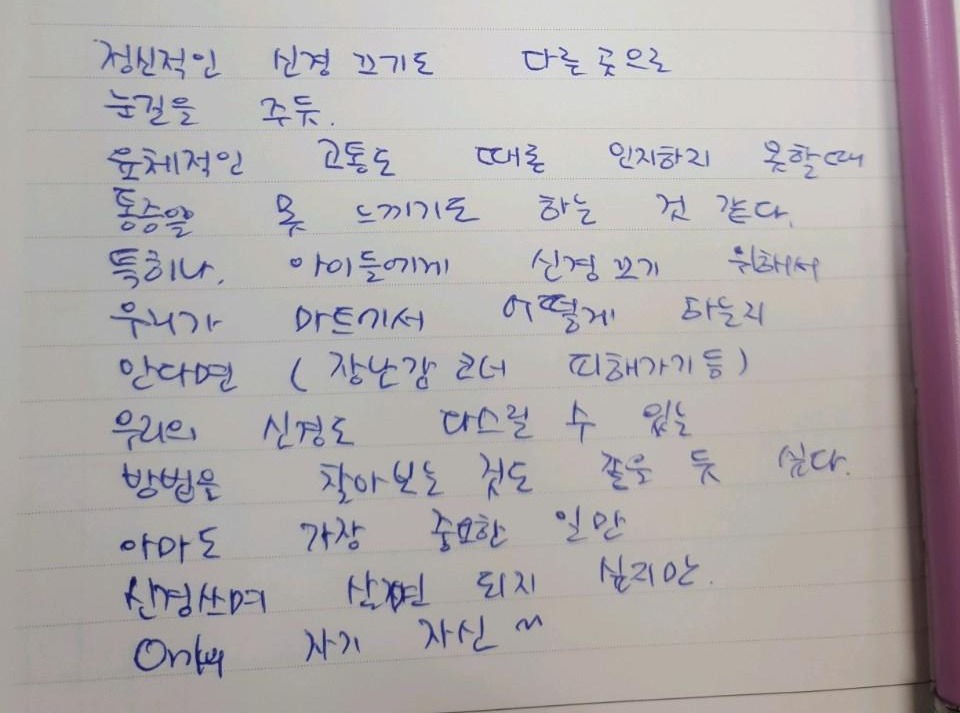 정신적인 신경 끄기도 다른 곳으로
눈길을 주듯.
육체적인 고통도 때론 인지하지 못할때
통증을 못 느끼기도 하는 것 같다.
특히나, 아이들에게 신경 끄기 위해서
우리가 마트에서 어떻게 하는지
안다면 (장난감 코너 피해가기 등)
우리의 신경도 다스릴 수 있는
방법을 찾아보는 것도 좋을 듯 싶다.
아마도 가장 중요한 일만
신경쓰며 살면 되지 싶지만.
Only 자기 자신 ~